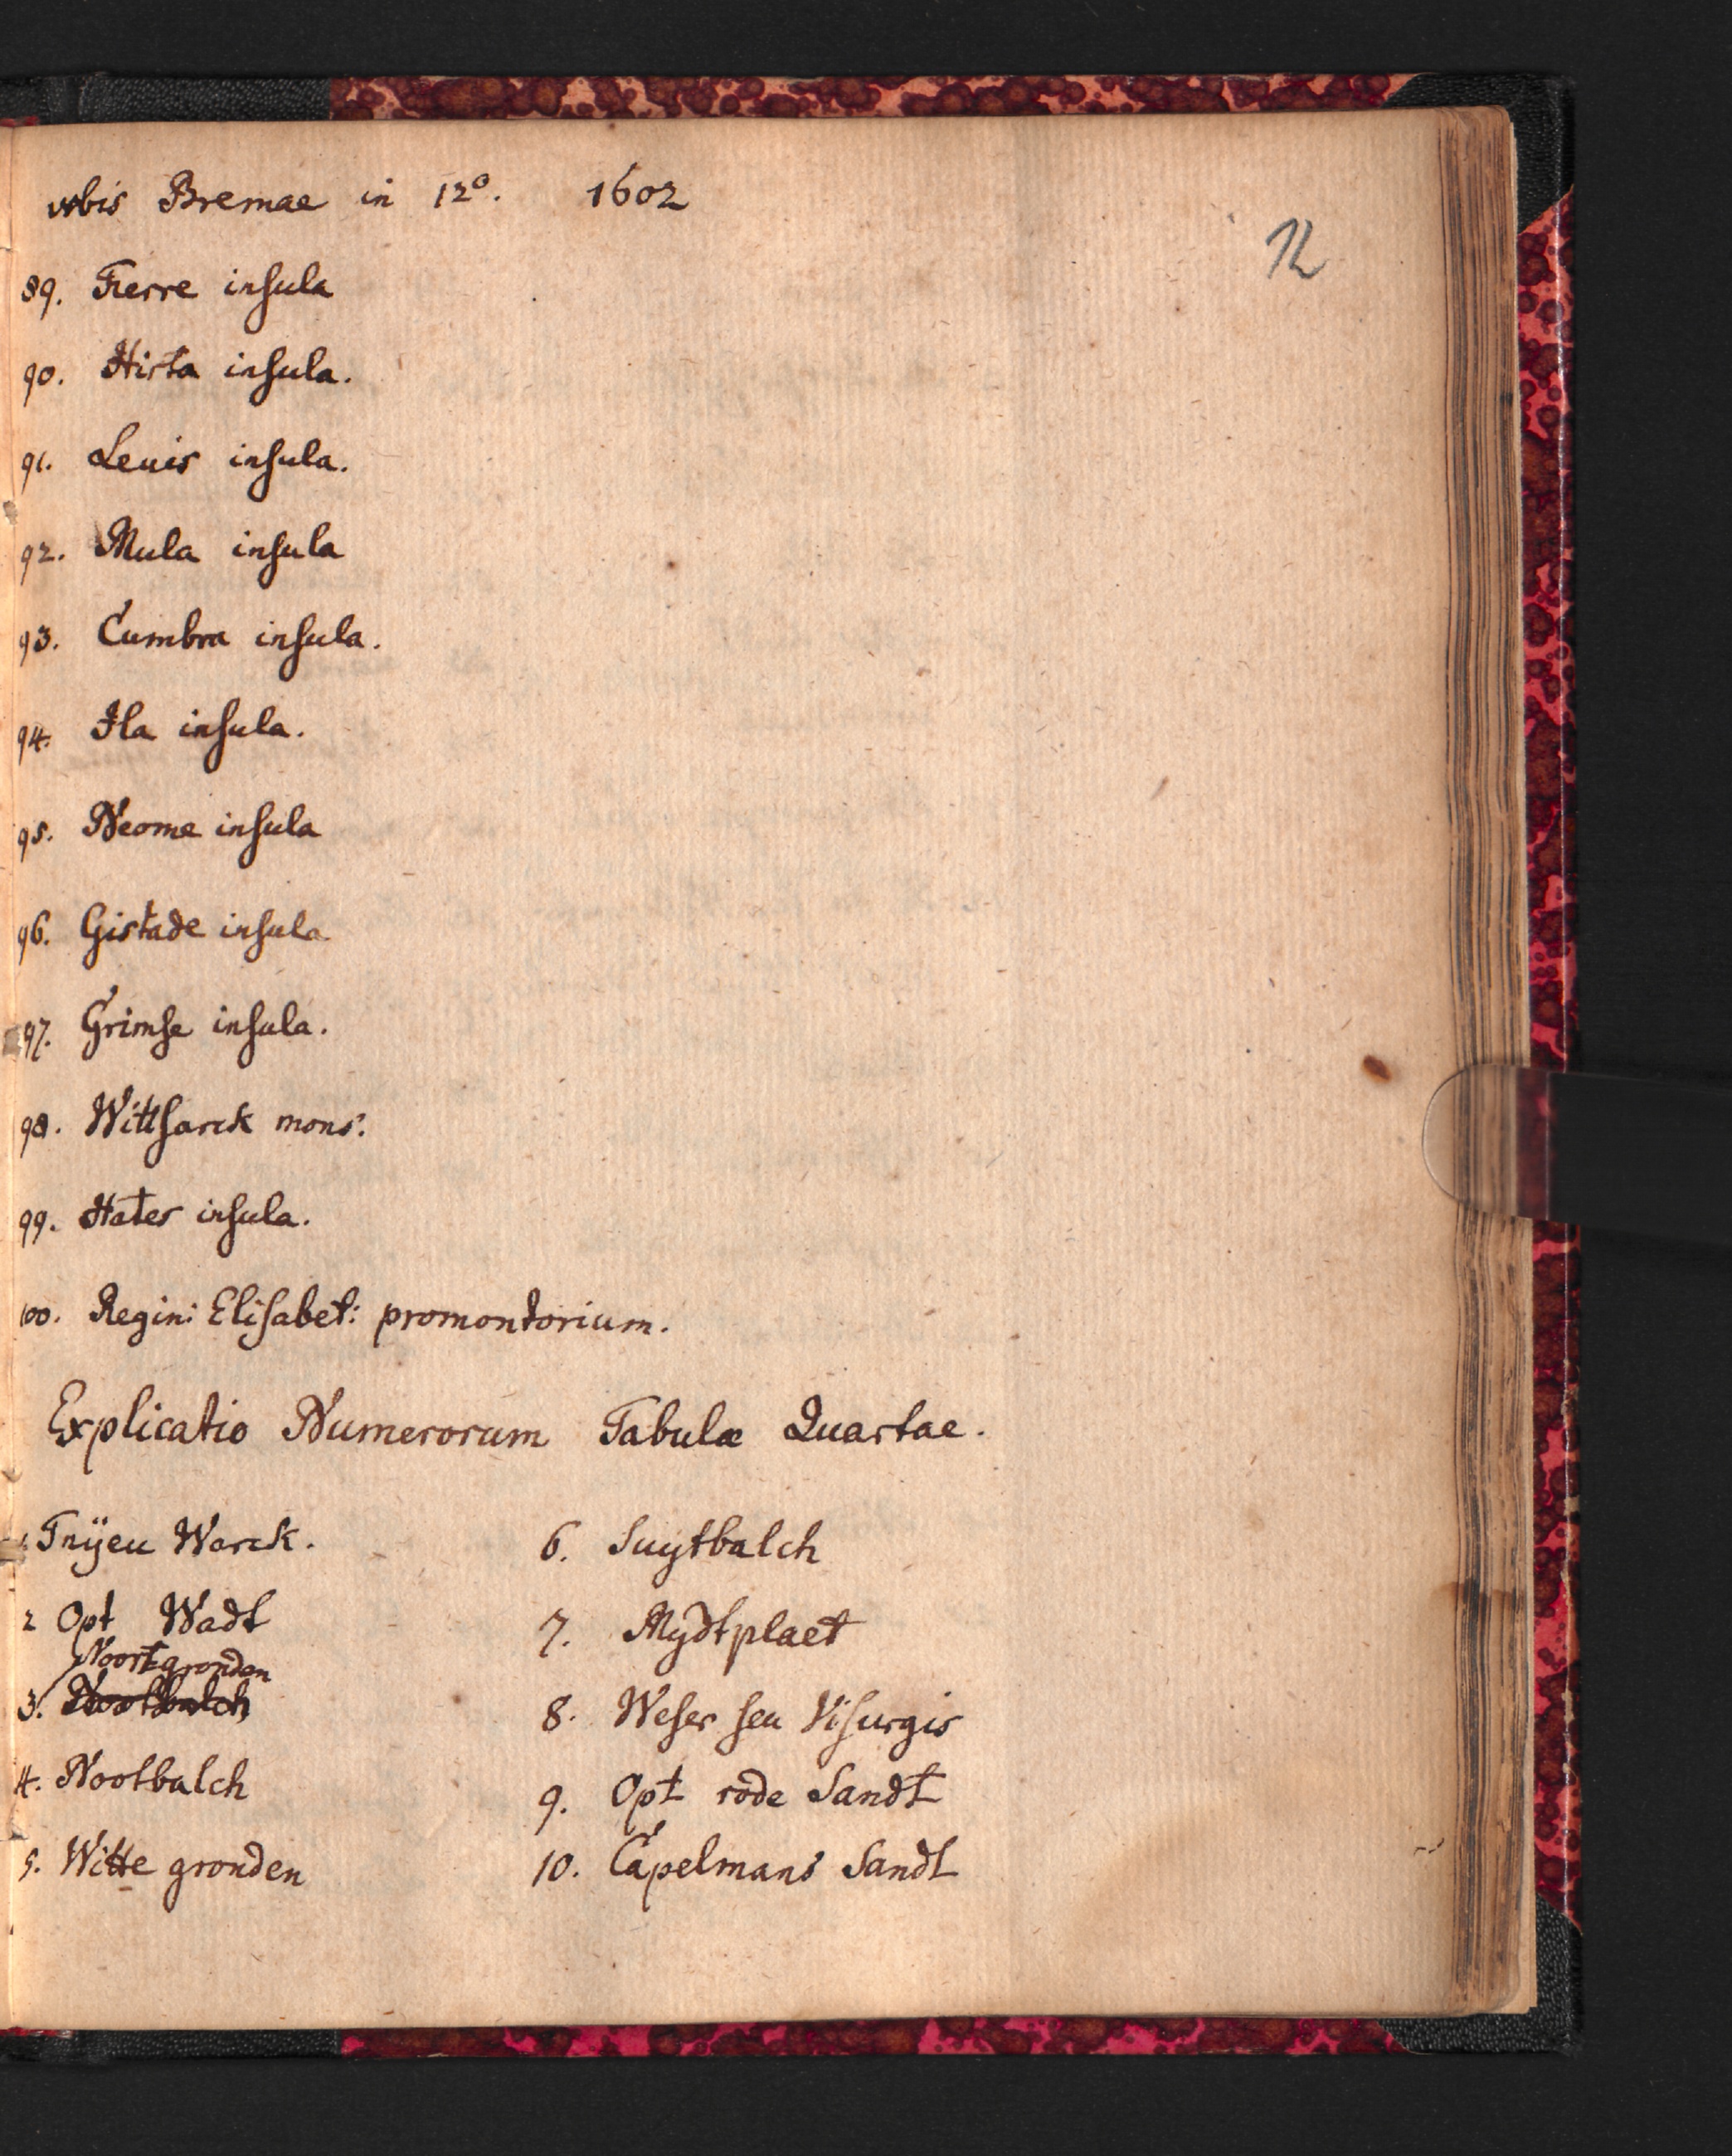 urbis Bremae in 12º. 1602
12
89. Fierre insula
90. Hirta insula.
91. Leuis insula.
92. Mula insula
93. Cumbra insula.
94. Ila insula.
95. Neoma insula
96. Gistade insula
97. Grimse insula.
98. Wittsarck mons.
99. Hates insula.
100. Regin: Elisabet: promontorium.
Explicatio Numerorum Tabulæ Quartae.
Tnÿeu Warck.
2 Opt Wadt
Noortgronden
3. Nootbalch
4. Nootbalch
5. Witte gronden
6. Suytbalch
7. Mydtplaet
8. Weser seu Visurgis
9. Opt rode Sandt
10. Capelmans Sandt